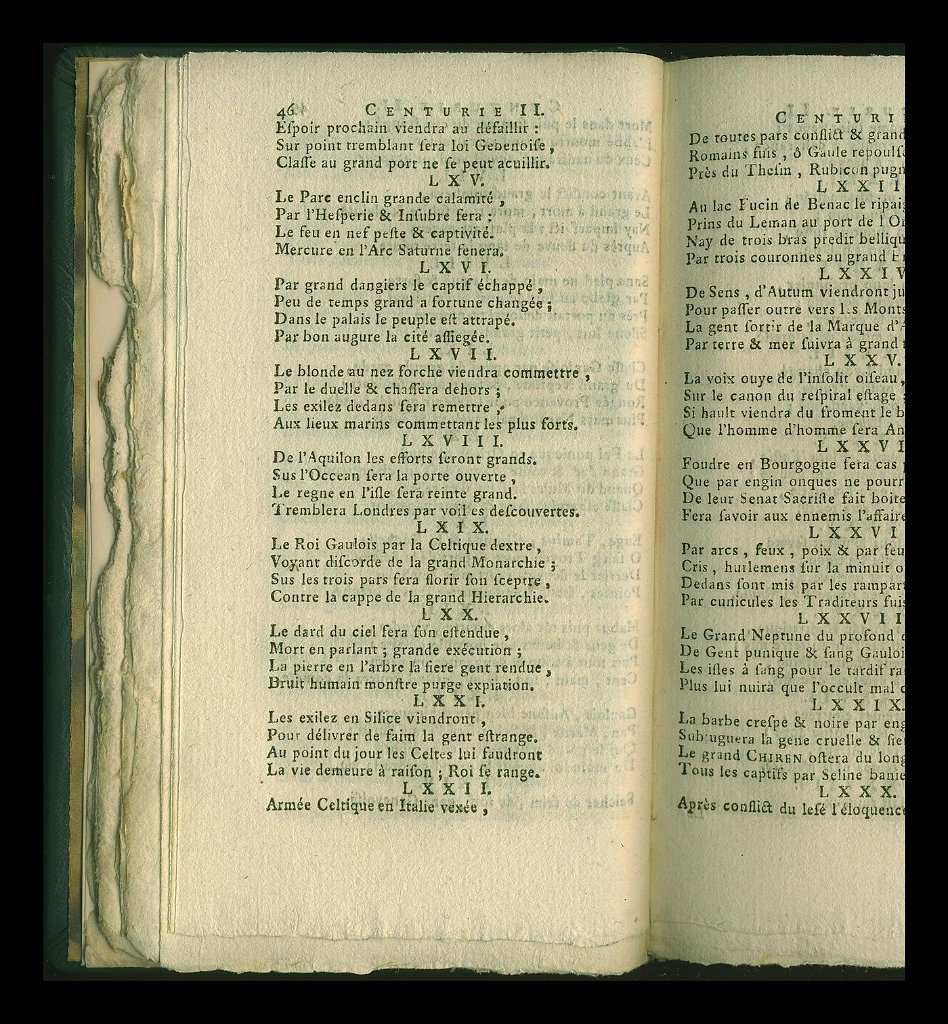 46. CENTURIE II.
Eſpoir prochain viendra au défaillir :
Sur point tremblant ſera loi Gebenoiſe ,
Claſſe au grand port ne ſe peut acuillir.
LXV.
Le Parc enclin grande calamité ,
Par l'Heſperie & Inſubre ſera :
Le feu en nef peſte & captivité.
Mercure en l'Arc Saturne fenera.
LXVI.
Par grand dangiers le captif échappé ,
Peu de temps grand a fortune changée ;
Dans le palais le peuple eſt attrapé.
Par bon augure la cité aſſiegée.
LXVII.
Le blonde au nez forche viendra commettre ,
Par le duelle & chaſſera dehors ;
Les exilez dedans fera remettre ,
Aux lieux marins commettant les plus forts.
LXVIII.
De l'Aquilon les efforts ſeront grands.
Sus l'Occean ſera la porte ouverte ,
Le regne en l'iſle ſera reinte grand.
Tremblera Londres par voil es deſcouvertes.
LXIX.
Le Roi Gaulois par la Celtique dextre ,
Voyant diſcorde de la grand Monarchie ;
Sus les trois pars fera florir ſon ſceptre ,
Contre la cappe de la grand Hierarchie.
LXX.
Le dard du ciel fera ſon eſtendue ,
Mort en parlant ; grande exécution ;
La pierre en l'arbre la fiere gent rendue ,
Bruit humain monſtre purge expiation.
LXXI.
Les exilez en Silice viendront ,
Pour délivrer de faim la gent eſtrange.
Au point du jour les Celtes lui faudront
La vie demeure à raiſon ; Roi ſe range.
LXXII.
Armée Celtique en Italie vexée ,
CENTURI
De toutes pars conflict & grand
Romains fuis , ô Gaule repoulſ
Près du Theſin , Rubicon pugn
LXXII
Au lac Fucin de Benac le ripai
Prins du Leman au port de l'O
Nay de trois bras predit belliqu
Par trois couronnes au grand
LXXIV
De Sens , d'Autum viendront ju
Pour paſſer outre vers les Monts
La gent ſortir de la Marque d'A
Par terre & mer ſuivra à grand
LXXV.
La voix ouye de l'inſolit oiſeau ,
Sur le canon du reſpiral eſtage
Si hault viendra du froment le b
Que l'homme d'homme ſera An
LXXVI
Foudre en Bourgogne fera cas
Que par engin onques ne pourr
De leur Senat Sacriſte fait boite
Fera ſavoir aux ennemis l'affaire
LXXVI
Par arcs , feux , poix & par feu
Cris , hurlemens ſur la minuit o
Dedans ſont mis par les rampar
Par cunicules les Traditeurs fuis
LXXVII
Le Grand Neptune du profond
De Gent punique & ſang Gauloi
Les iſles à ſang pour le tardif ra
Plus lui nuirà que l'occult mal c
LXXIX.
La barbe creſpe & noire par eng
Subjuguera la gene cruelle & fie
Le grand CHIREN oſtera du long
Tous les captifs par Seline banie
LXXX.
Après conflict du leſé l'éloquence